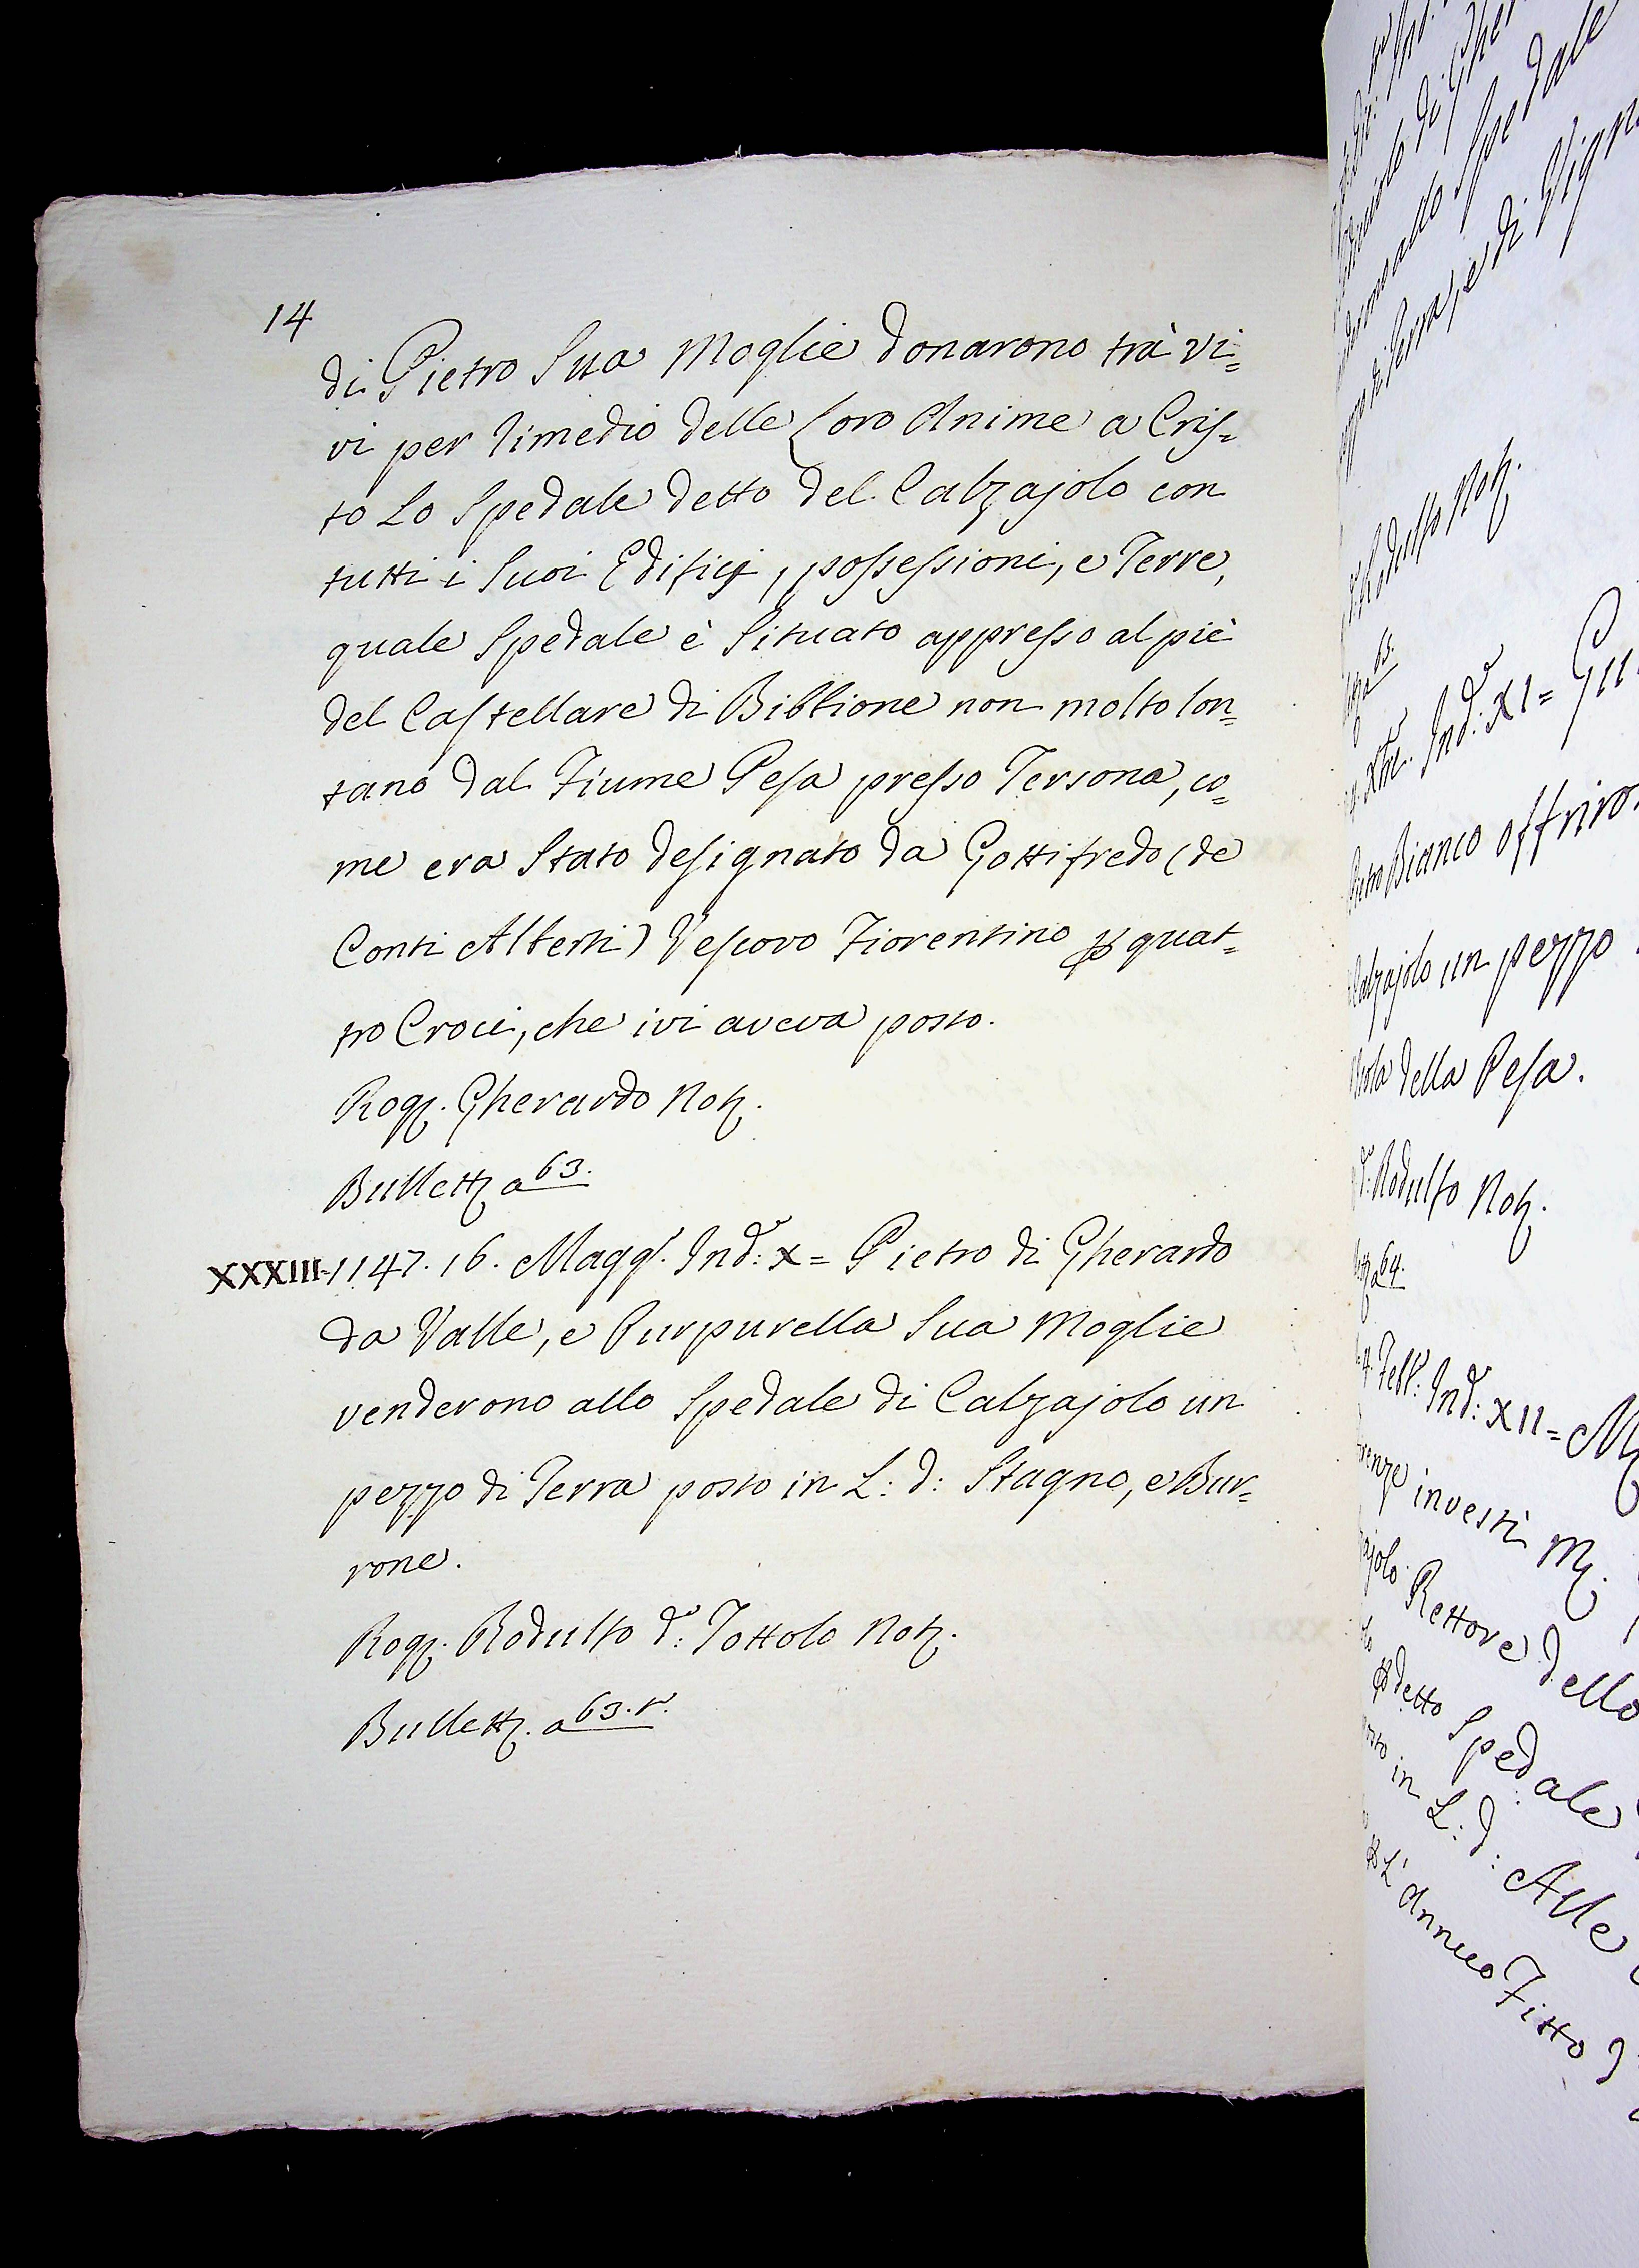 14
di Pietro Sua Moglie donarono trà vi=
vi per rimedio delle Loro Anime a Cris=
to Lo Spedale detto del Calzajolo con
tutti i Suoi Edificj, possessioni, e Terre,
quale Spedale è Situato appresso al piè
del Castellare di Bibbione non molto lon=
tano dal Fiume Pesa presso Tersona, co=
me era Stato designato da Gottifredo (de
Conti Alberti) Vescovo Fiorentino p quat=
tro Croci, che ivi aveva posto.
Rogz. Gherardo Notz.
Bullettz a 63.
XXXIII-1147. 16. Magg. Ind: X= Pietro di Gherardo
da Valle, e Purpurella Sua Moglie
venderono allo Spedale di Calzajolo un
pezzo di Terra posto in L: d: Stagno, e Bur=
rone.
Rogz. Rodulfo d: Tottolo Notz.
Bullettz. a 63. r.
Spedale
e di
Notz.
63.
Ind: XI=
Bianco offriro
un pezzo
della Pesa.
Rodulfo Notz.
64.
Ind: XII=
investì
Rettore dello
detto Spedale
in L: d: Alle
L'annuo Fitto